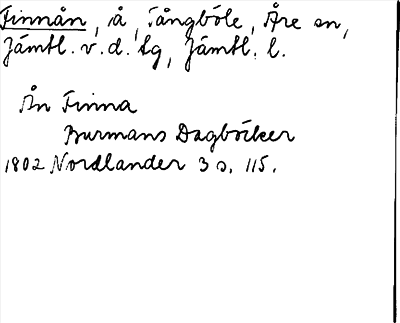 Finnån, å, Tångböle, Åre sn,
Jämtl. v. d. tg, Jämtl. l.
Ån Finna
Burmans Dagböcker
1802 Nordlander 3 s. 115.